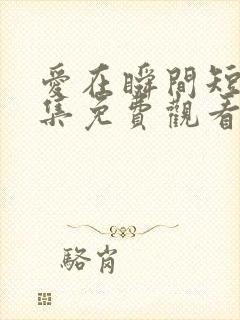 愛在瞬間短
集免費觀看
駱肖